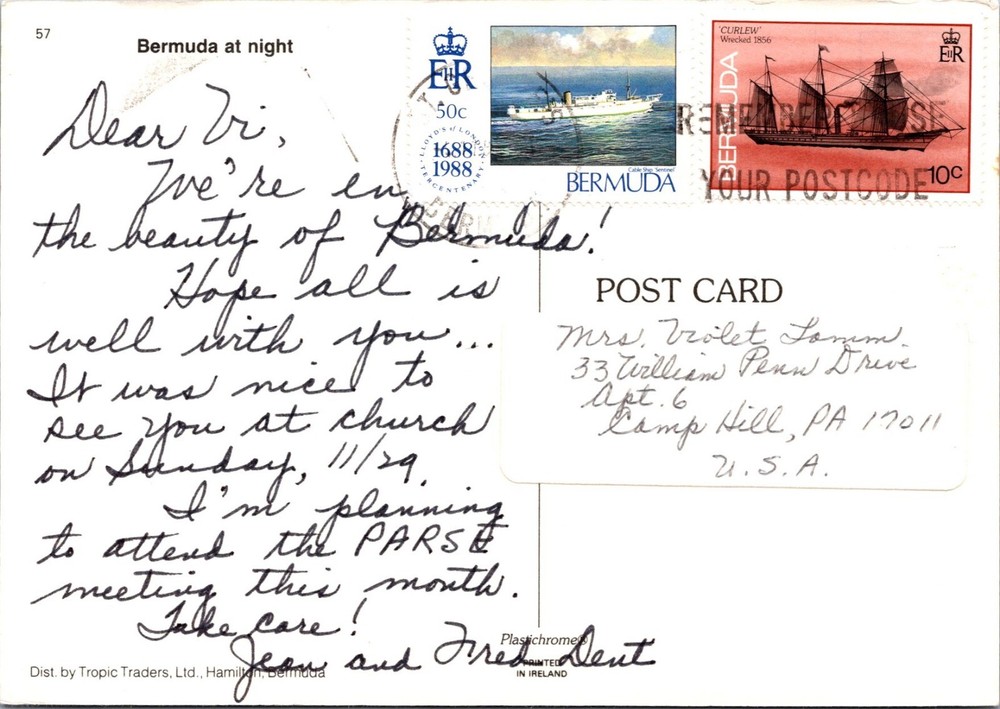 57
Bermuda at night
Dear Vi,
We're en
the beauty of Bermuda!
Hope all is
well with you...
It was nice to
see you at church
on Sunday, 11/29.
I'm planning
to attend the PARSE
meeting this month.
Take care!
Jean and Fred Dent
Dist. by Tropic Traders, Ltd., Hamilton, Bermuda
EIIR
50c
LLOYD'S of LONDON
1688
1988
TERCENTENARY
Cable Ship 'Sentinel'
BERMUDA
'CURLEW'
Wrecked 1856
EIIR
BERMUDA
10c
REMEMBER USE
YOUR POSTCODE
POST CARD
Mrs. Violet
33 William Penn Drive
Apt. 6
Camp Hill, PA 17011
U.S.A.
Plastichrome®
PRINTED
IN IRELAND